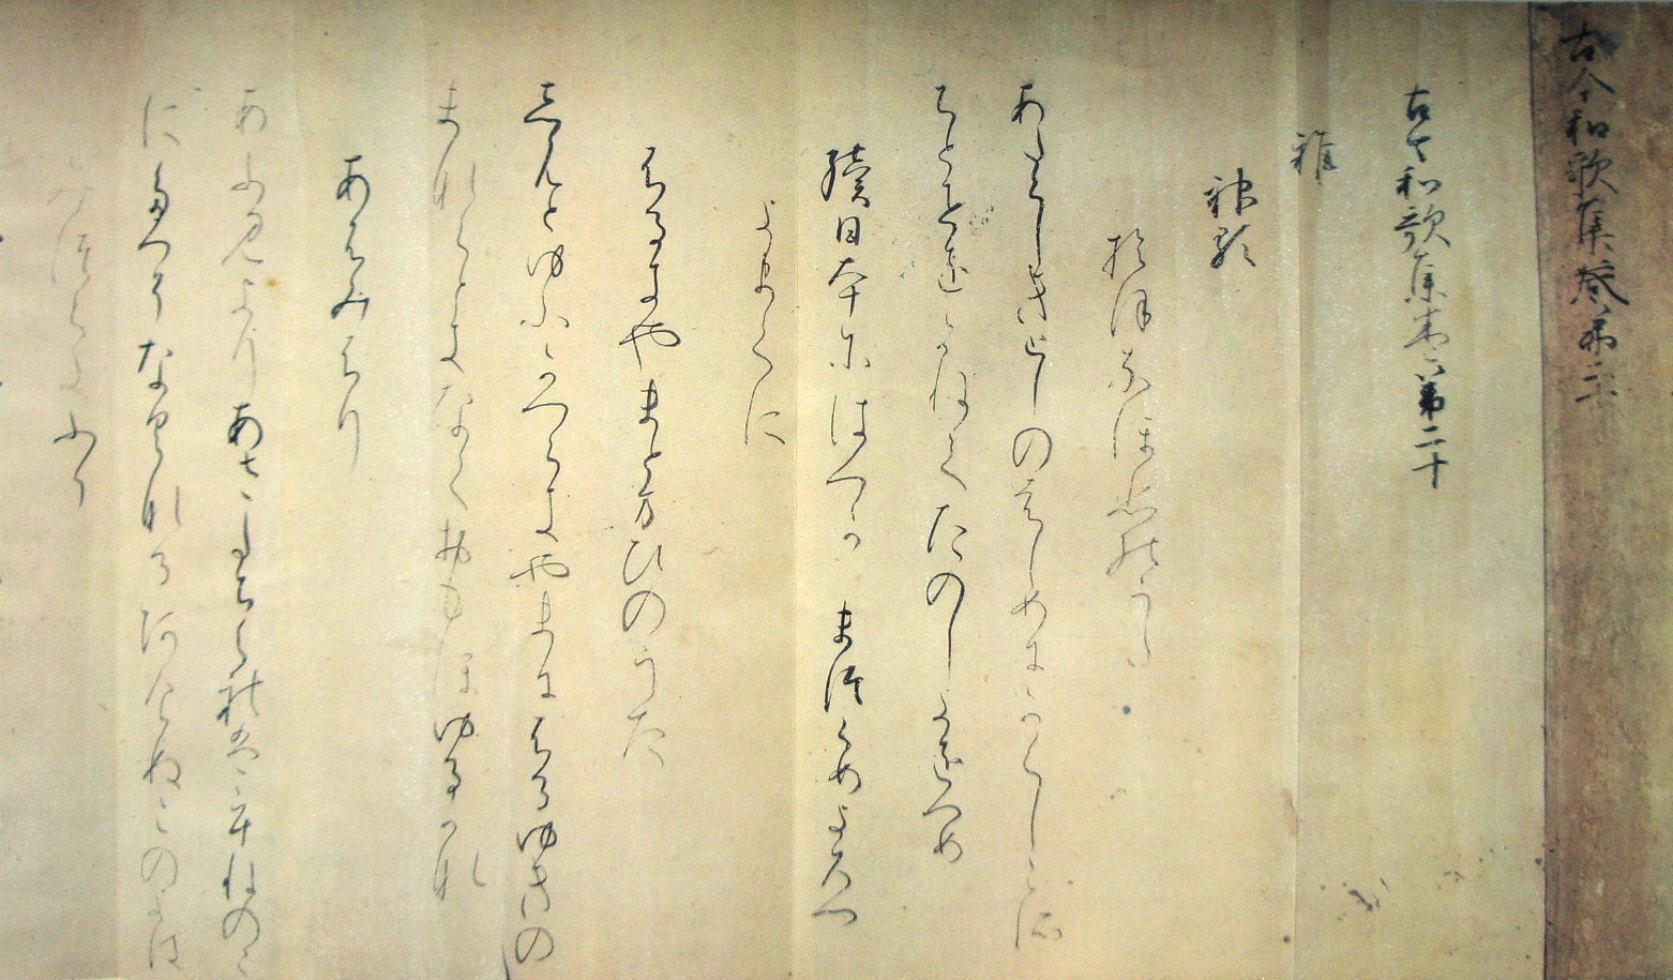 古今和歌集巻第二
古今和歌集巻第二十
雜
神歌
於保なほ悲能うた
あたらしきとしのはしめにかくしこそ
ちとせをかねてたのしきをつめ
續日本にはつかまつらめよろつ
よまてに
ふるきやまと万ひのうた
しもとゆふかつらきやまにふるゆきの
まなくときなくおもほゆるかな
あふみふり
あふみよりあさたちくれはうねのの
にたつそなくなるあけぬこのよは
みつくきふり